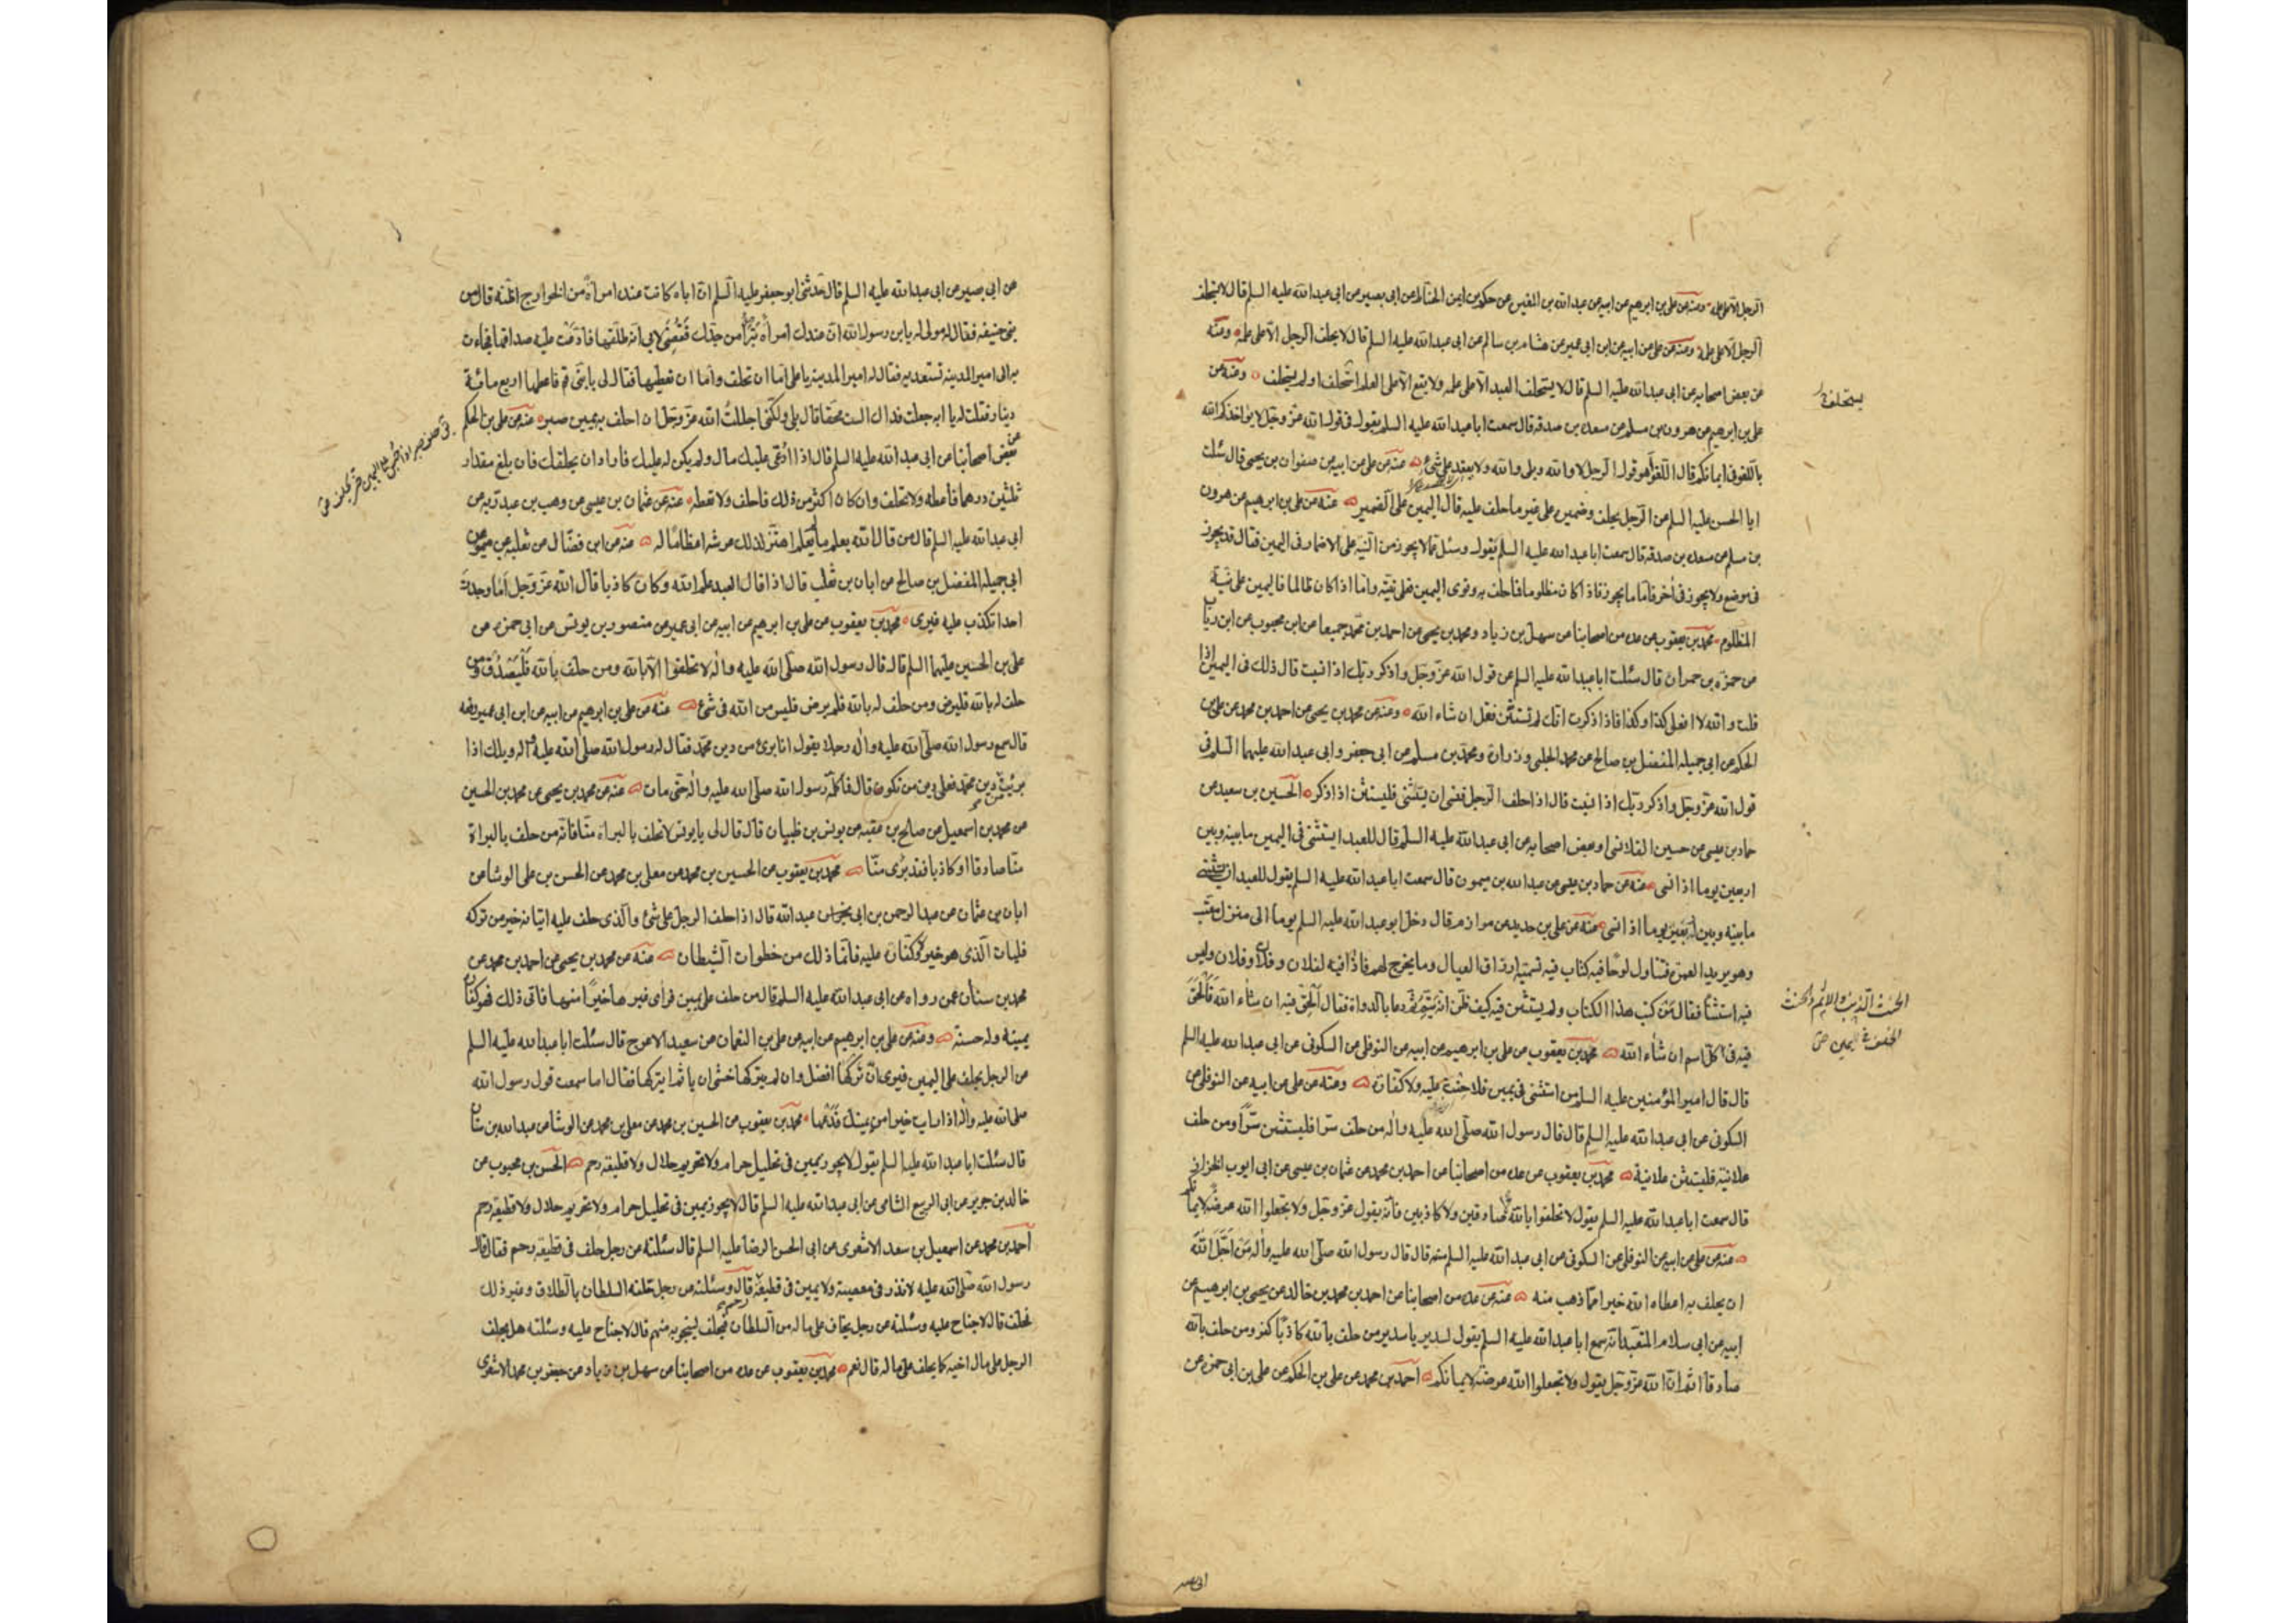 الرجل الا على علمه ومنه عن على بن ابرهيم عن ابيه عن عبدالله بن المغيرة عن حكم بن ايمن الحناط عن ابى بصير عن ابى عبد الله عليه السلم قال لا يستحلف
الرجل الا على علمه ومنه عن على عن ابيه عن ابن ابى عمير عن هشام بن سالم عن ابى عبد الله عليه السلم قال لا يحلف الرجل الا على علمه ومنه
عن بعض اصحابه عن ابى عبدالله عليه السلم قال لا يستحلف العبد الا على علمه ولا يقع الا على العلم استحلف او لم يستحلف ومنه عن
يستحلف
على بن ابرهيم عن هرون بن مسلم عن مسعدة بن صدقه قال سمعت ابا عبدالله عليه السلم يقول فى قول الله عز وجل لا يؤاخذكم الله
باللغو فى ايمانكم قال اللغو هو قول الرجل لا والله وبلى والله ولا يعقد على شئ منه عن على عن ابيه عن صفوان بن يحيى قال سئلت
ابا الحسن عليه السلم عن الرجل يحلف وضميره على غير ما حلف عليه قال اليمين على الضمير منه عن على بن ابرهيم عن هرون
بن مسلم عن مسعدة بن صدقه قال سمعت ابا عبد الله عليه السلم يقول وسئل عما لا يجوز من النية على الاضمار فى اليمين فقال قد يجوز
فى موضع ولا يجوز فى اخر فاما ما يجوز فاذا كان مظلوما فما حلف به ونوى اليمين فعلى نيته واما اذا كان ظالما فاليمين على نية
المظلوم محمد بن يعقوب عن عدة من اصحابنا عن سهل بن زياد ومحمد بن يحيى عن احمد بن محمد جميعا عن ابن محبوب عن ابن رئاب
عن حمزه بن حمران قال سئلت ابا عبدالله عليه السلم عن قول الله عز وجل واذكر ربك اذا نسيت قال ذلك فى اليمين اذا
قلت والله لا افعل كذا وكذا فاذا ذكرت انك لم تستثن فقل ان شاء الله ومنه عن محمد بن يحيى عن احمد بن محمد عن على بن
الحكم عن ابى جميله المفضل بن صالح عن محمد الحلبى وزرارة ومحمد بن مسلم عن ابى جعفر وابى عبد الله عليهما السلم فى
قول الله عز وجل واذكر ربك اذا نسيت قال اذا حلف الرجل فنسى ان يستثنى فليستثن اذا ذكر الحسين بن سعيد عن
حماد بن عيسى عن حسين القلانسى او بعض اصحابه عن ابى عبدالله عليه السلم قال للعبد ان يستثنى فى اليمين ما بينه وبين
اربعين يوما اذا نسى منه عن حماد بن عيسى عن عبد الله بن ميمون قال سمعت ابا عبدالله عليه السلم يقول للعبد ان يستثنى
ما بينه وبين اربعين يوما اذا نسى منه عن على بن حديد عن مرازم قال دخل ابو عبد الله عليه السلم يوما الى منزل معتب
وهو يريد العمرة فتناول لوحا فيه كتاب فيه تسمية ارزاق العيال وما يخرج لهم فاذا فيه لفلان وفلان وفلان وليس
فيه استثناء فقال من كتب هذا الكتاب ولم يستثن فيه كيف ظن انه يتم ثم دعا بالدواة فقال الحق فيه ان شاء الله فالحق
الحنث الذنب والاثم والحنث
الخلف فى اليمين ص
فيه فى كل اسم ان شاء الله محمد بن يعقوب عن على بن ابرهيم عن ابيه عن النوفلى عن السكونى عن ابى عبد الله عليه السلم
قال قال امير المؤمنين عليه السلم من استثنى فى يمين فلا حنث عليه ولا كفارة ومنه عن على عن ابيه عن النوفلى عن
السكونى عن ابى عبدالله عليه السلم قال قال رسول الله صلى الله عليه واله من حلف سرا فليستثن سرا ومن حلف
علانية فليستثن علانية محمد بن يعقوب عن عدة من اصحابنا عن احمد بن محمد عن عثمان بن عيسى عن ابى ايوب الخزاز
قال سمعت ابا عبدالله عليه السلم يقول لا تحلفوا بالله صادقين ولا كاذبين فانه يقول عز وجل ولا تجعلوا الله عرضة لايمانكم
منه عن على عن ابيه عن النوفلى عن السكونى عن ابى عبد الله عليه السلم قال قال رسول الله صلى الله عليه واله من اجل الله
ان يحلف به اعطاه الله خيرا مما ذهب منه منه عن عدة من اصحابنا عن احمد بن محمد بن خالد عن يحيى بن ابرهيم عن
ابيه عن ابى سلام المتعبد انه سمع ابا عبدالله عليه السلم يقول لسدير يا سدير من حلف بالله كاذبا كفر ومن حلف بالله
صادقا اثم ان الله عز وجل يقول ولا تجعلوا الله عرضة لايمانكم احمد بن محمد عن على بن الحكم عن على بن ابى حمزه عن
ابى بصير
عن ابى بصير عن ابى عبدالله عليه السلم قال حدثنى ابو جعفر عليه السلم ان اباه كانت عنده امرأة من الخوارج اظنه قال من
بنى حنيفه فقال له مولى له يابن رسول الله ان عندك امرأة تبرأ من جدك فقضى لابى انه طلقها فادعت عليه صداقها فجاءت
به الى امير المدينه تستعديه فقال له امير المدينه يا على اما ان تحلف واما ان تعطيها فقال لى يا بنى قم فاعطها اربع مائة
دينار فقلت له يا ابه جعلت فداك الست محقا قال بلى ولكنى اجللت الله عز وجل ان احلف به يمين صبر منه عن على بن الحكم
عن بعض اصحابنا عن ابى عبد الله عليه السلم قال اذا ادعى عليك مال ولم يكن له عليك فاراد ان يحلفك فان بلغ مقدار
ثلثين درهما فاعطه ولا تحلف وان كان اكثر من ذلك فاحلف ولا تعطه منه عن عثمان بن عيسى عن وهب بن عبد ربه عن
ابى عبدالله عليه السلم قال من قال الله يعلم ما لم يعلم اهتز لذلك عرشه اعظاما له منه عن ابن فضال عن ثعلبه بن ميمون عن
ابى جميله المفضل بن صالح عن ابان بن تغلب قال اذا قال العبد علم الله وكان كاذبا قال الله عز وجل اما وجدت
احدا تكذب عليه غيرى محمد بن يعقوب عن على بن ابرهيم عن ابيه عن ابى عمير عن منصور بن يونس عن ابى حمزه عن
على بن الحسين عليهما السلم قال قال رسول الله صلى الله عليه واله لا تحلفوا الا بالله ومن حلف بالله فليصدق ومن
حلف له بالله فليرض ومن حلف له بالله فلم يرض فليس من الله فى شئ منه عن على بن ابرهيم عن ابيه عن ابن ابى عمير رفعه
قال سمع رسول الله صلى الله عليه واله رجلا يقول انا برئ من دين محمد فقال له رسول الله صلى الله عليه واله ويلك اذا
برئت من دين محمد فعلى دين من تكون قال فما كلمه رسول الله صلى الله عليه واله حتى مات منه عن محمد بن يحيى عن محمد بن الحسين
عن محمد بن اسمعيل عن صالح بن عقبه عن يونس بن ظبيان قال قال لى يا يونس لا تحلف بالبراءة منا فانه من حلف بالبراة
منا صادقا او كاذبا فقد برئ منا محمد بن يعقوب عن الحسين بن محمد عن معلى بن محمد عن الحسن بن على الوشا عن
ابان بن عثمان عن عبد الرحمن بن ابى عبدالله قال اذا حلف الرجل على شئ والذى حلف عليه اتيانه خير من تركه
فليات الذى هو خير ولا كفارة عليه فانما ذلك من خطوات الشيطان منه عن محمد بن يحيى عن احمد بن محمد عن
محمد بن سنان عمن رواه عن ابى عبد الله عليه السلم قال من حلف على يمين فرأى غيرها خيرا منها فاتى ذلك فهو كفارة
يمينه وله حسنة ومنه عن على بن ابرهيم عن ابيه عن على بن النعمان عن سعيد الاعرج قال سئلت ابا عبدالله عليه السلم
عن الرجل يحلف على اليمين فيرى ان تركها افضل وان لم يتركها خشى ان ياثم ايتركها فقال اما سمعت قول رسول الله
صلى الله عليه واله اذا رايت خيرا من يمينك فدعها محمد بن يعقوب عن الحسين بن محمد عن معلى بن محمد عن الوشا عن عبدالله بن سنان
قال سئلت ابا عبد الله عليه السلم يقول لا يجوز يمين فى تحليل حرام ولا تحريم حلال ولا قطيعه رحم الحسن بن محبوب عن
خالد بن جرير عن ابى الربيع الشامى عن ابى عبدالله عليه السلم قال لا يجوز يمين فى تحليل حرام ولا تحريم حلال ولا قطيعة رحم
احمد بن محمد عن اسمعيل بن سعد الاشعرى عن ابى الحسن الرضا عليه السلم قال سئلته عن رجل حلف فى قطيعة رحم فقال قال
رسول الله صلى الله عليه لا نذر فى معصية ولا يمين فى قطيعة رحم قال وسئلته عن رجل حلفه السلطان بالطلاق وغير ذلك
فحلف قال لا جناح عليه وسئلته عن رجل يخاف على ماله من السلطان فيحلف لينجو به منهم قال لا جناح عليه وسئلته هل يحلف
الرجل على مال اخيه كما يحلف على ماله قال نعم محمد بن يعقوب عن عدة من اصحابنا عن سهل بن زياد عن جعفر بن محمد الاشعرى